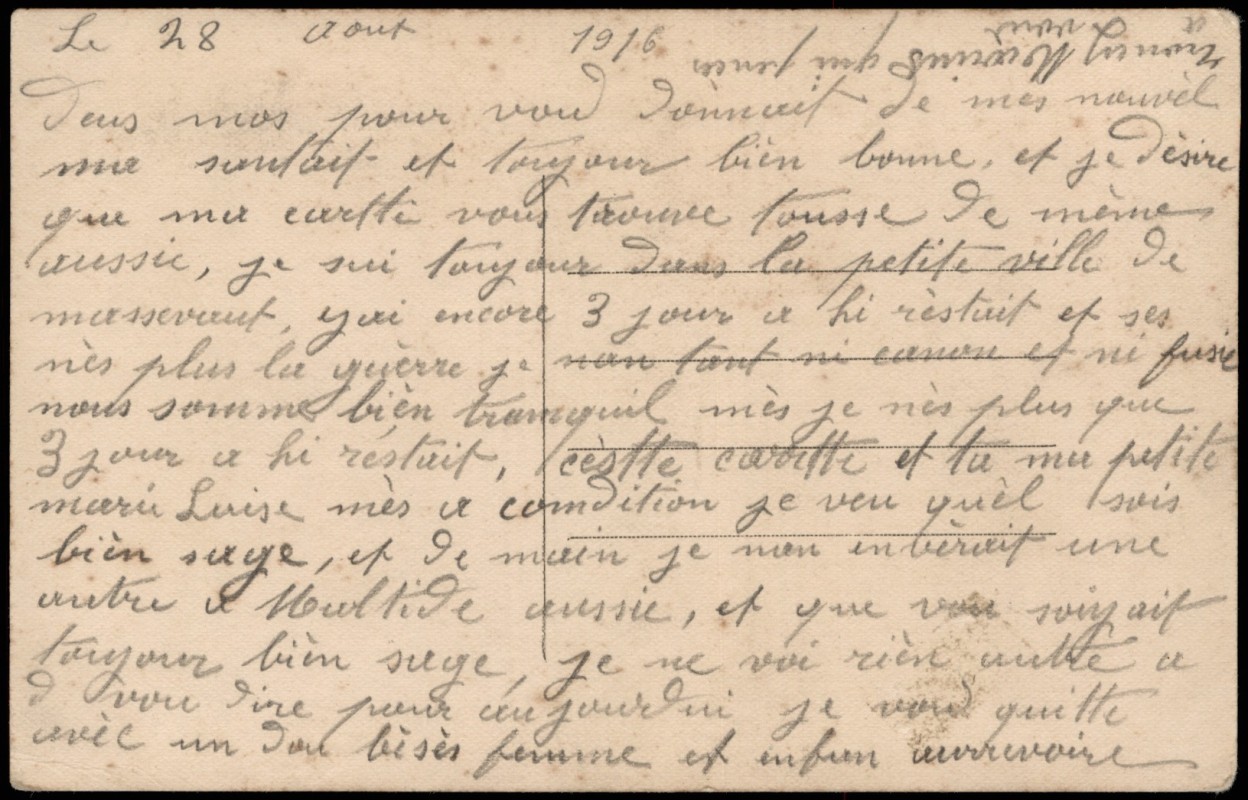 Le 28 Aout 1916
Deus mos pour vou donnait de mes nouvèl
ma santait et toujour bièn bonne, et je dèsire
que ma cartte vous trouve tousse de mème
aussie, je sui toujour dans la petite ville de
massevaut, yai encore 3 jour a hi rèstait et ses
nès plus la guèrre je nan tant ni canon et ni fusie
nous somme bièn tranquil mès je nès plus que
3 jour a hi rèstait, cèstte cartte et ta ma petite
marie Luise mès a comdition je veu quèl sois
bièn sage, et de main je nan enbèrait une
autre a Maltide aussie, et que vou soiyait
toujour bièn sage, je ne voi rièn autre a
vou dire pour aujourdui je vou quitte
avèc un dou bèsès femme et enfan aurrevoire
Marius qui pense
a vous